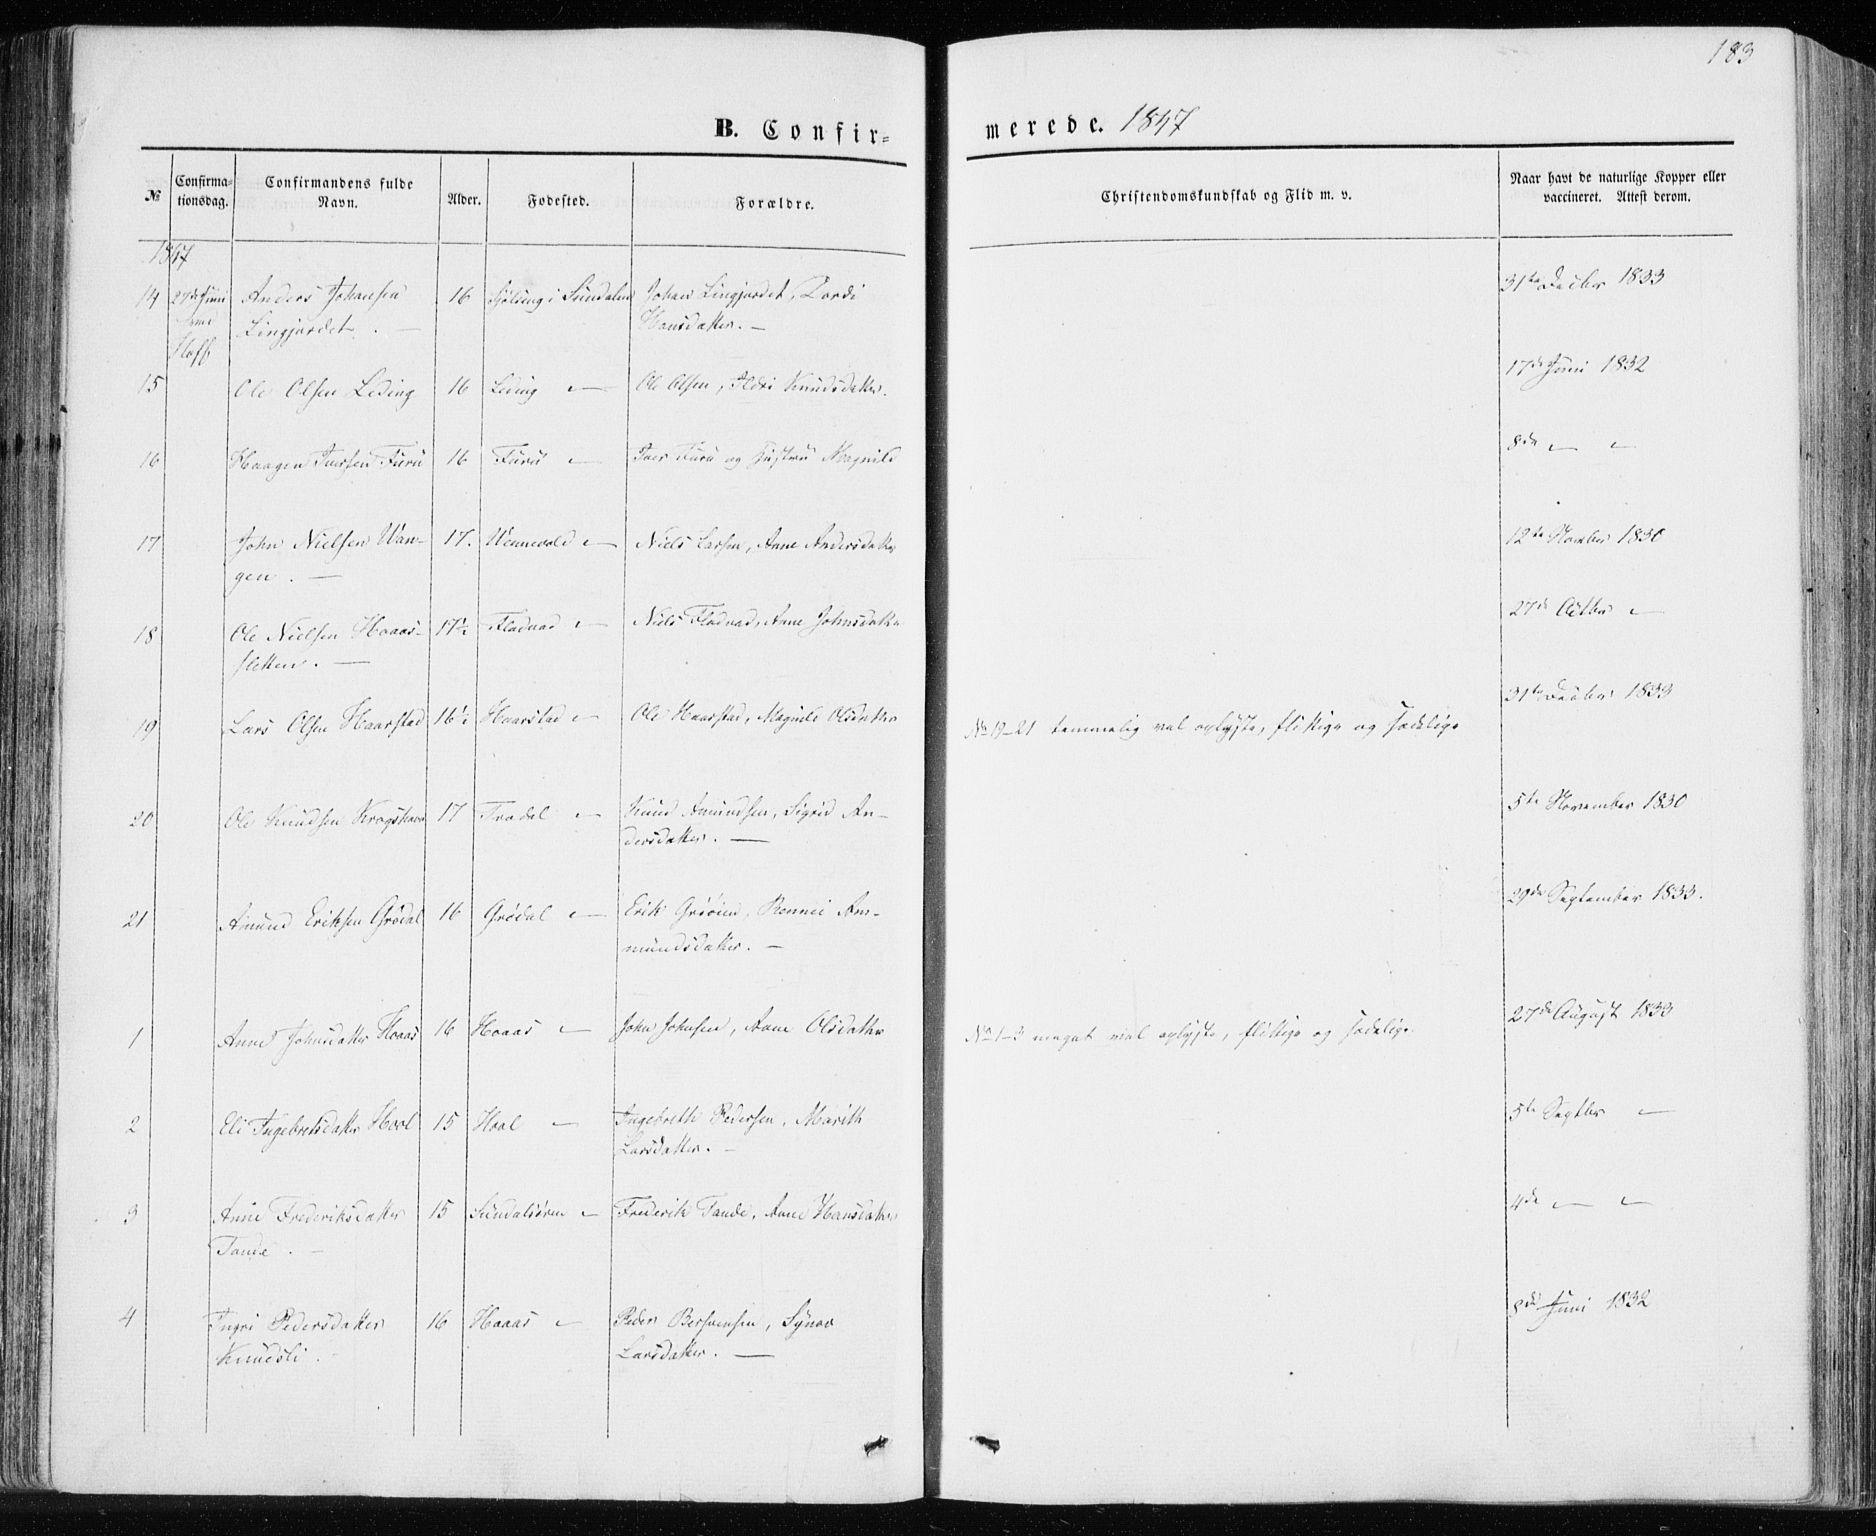 183
B. Confir-
merede. 1847
№
Confirma-
tionsdag.
Confirmandens fulde
Navn.
Alder.
Fødested.
Forældre.
Christendomskundskab og Flid m. v.
Naar havt de naturlige Kopper eller
vaccineret. Attest derom.
1847
14 27de Juni Anders Johansen 16 i Sundalen Johan Lingjordet, Dordi 31te Decbr 1833
Lingjordet. — Hansdatter. —
Hoff
15 Ole Olsen Leding 16 Leding — Ole Olsen, Ildri Knudsdatter. 17de Juni 1832
16 Haagen Iversen Furu 16 Furu — Iver Furu og Hustru Magnild 8de — —
17 John Nielsen Wan- 17. Wennevold — Niels Larsen, Anne Andersdatter 12te Novmber 1830
gen. —
18 Ole Nielsen Hoaas- 17½ Fladvad — Niels Fladvad, Anne Johnsdatter 27de Octbr —
sletten. —
19 Lars Olsen Haarstad 16½ Haarstad — Ole Haarstad, Magnild Olsdatter No 19-21 temmelig vel oplyste, flittige og sædelige 31te Decbr 1833
20 Ole Knudsen 17 Trædal — Knud Amundsen, Sigrid An- 5te November 1830
dersdatter. —
21 Amund Eriksen Grødal 16 Grødal — Erik Grøien, Rennei Am- 29de September 1833.
mundsdatter. —
1 Anne Johnsdatter Hoaas 16 Hoaas — John Johnsen, Anne Olsdatter No 1-3 meget vel oplyste, flittige og sædelige. 27de August 1833
2 Eli Ingebretsdatter Hool 15 Hool — Ingebreth Pedersen, Marith 5te Septbr —
Larsdatter. —
3 Anne Frederiksdatter 15 Sundalsøren — Frederik Tande, Anne Hansdatter 4de — —
Tande. —
4 Ingri Pedersdatter 16 Hoaas — Peder Bersvensen, Synov 8de Juni 1832
Knudsli. — Larsdatter. —